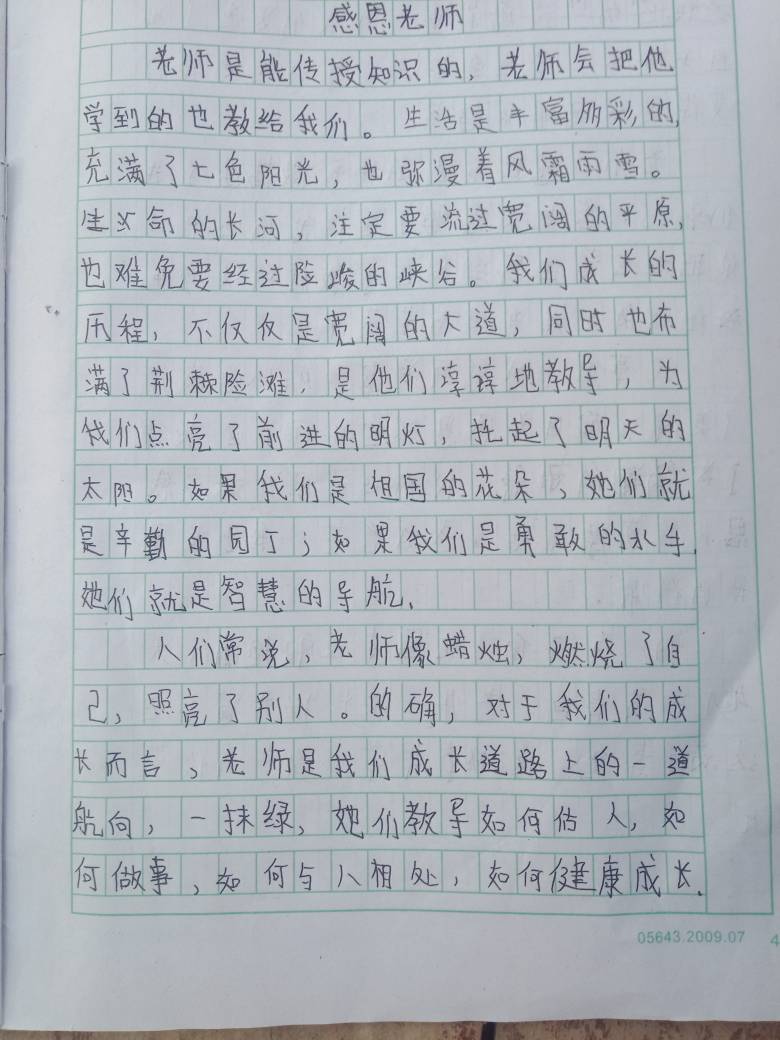 感恩老师
老师是能传授知识的，老师会把他
学到的也教给我们。生活是丰富多彩的，
充满了七色阳光，也弥漫着风霜雨雪。
生命的长河，注定要流过宽阔的平原，
也难免要经过险峻的峡谷。我们成长的
历程，不仅仅是宽阔的大道，同时也布
满了荆棘险滩，是他们谆谆地教导，为
我们点亮了前进的明灯，托起了明天的
太阳。如果我们是祖国的花朵，她们就
是辛勤的园丁；如果我们是勇敢的水手，
她们就是智慧的导航，
人们常说，老师像蜡烛，燃烧了自
己，照亮了别人。的确，对于我们的成
长而言，老师是我们成长道路上的一道
航向，一抹绿，她们教导如何估人，如
何做事，如何与人相处，如何健康成长．
05643.2009.07 4